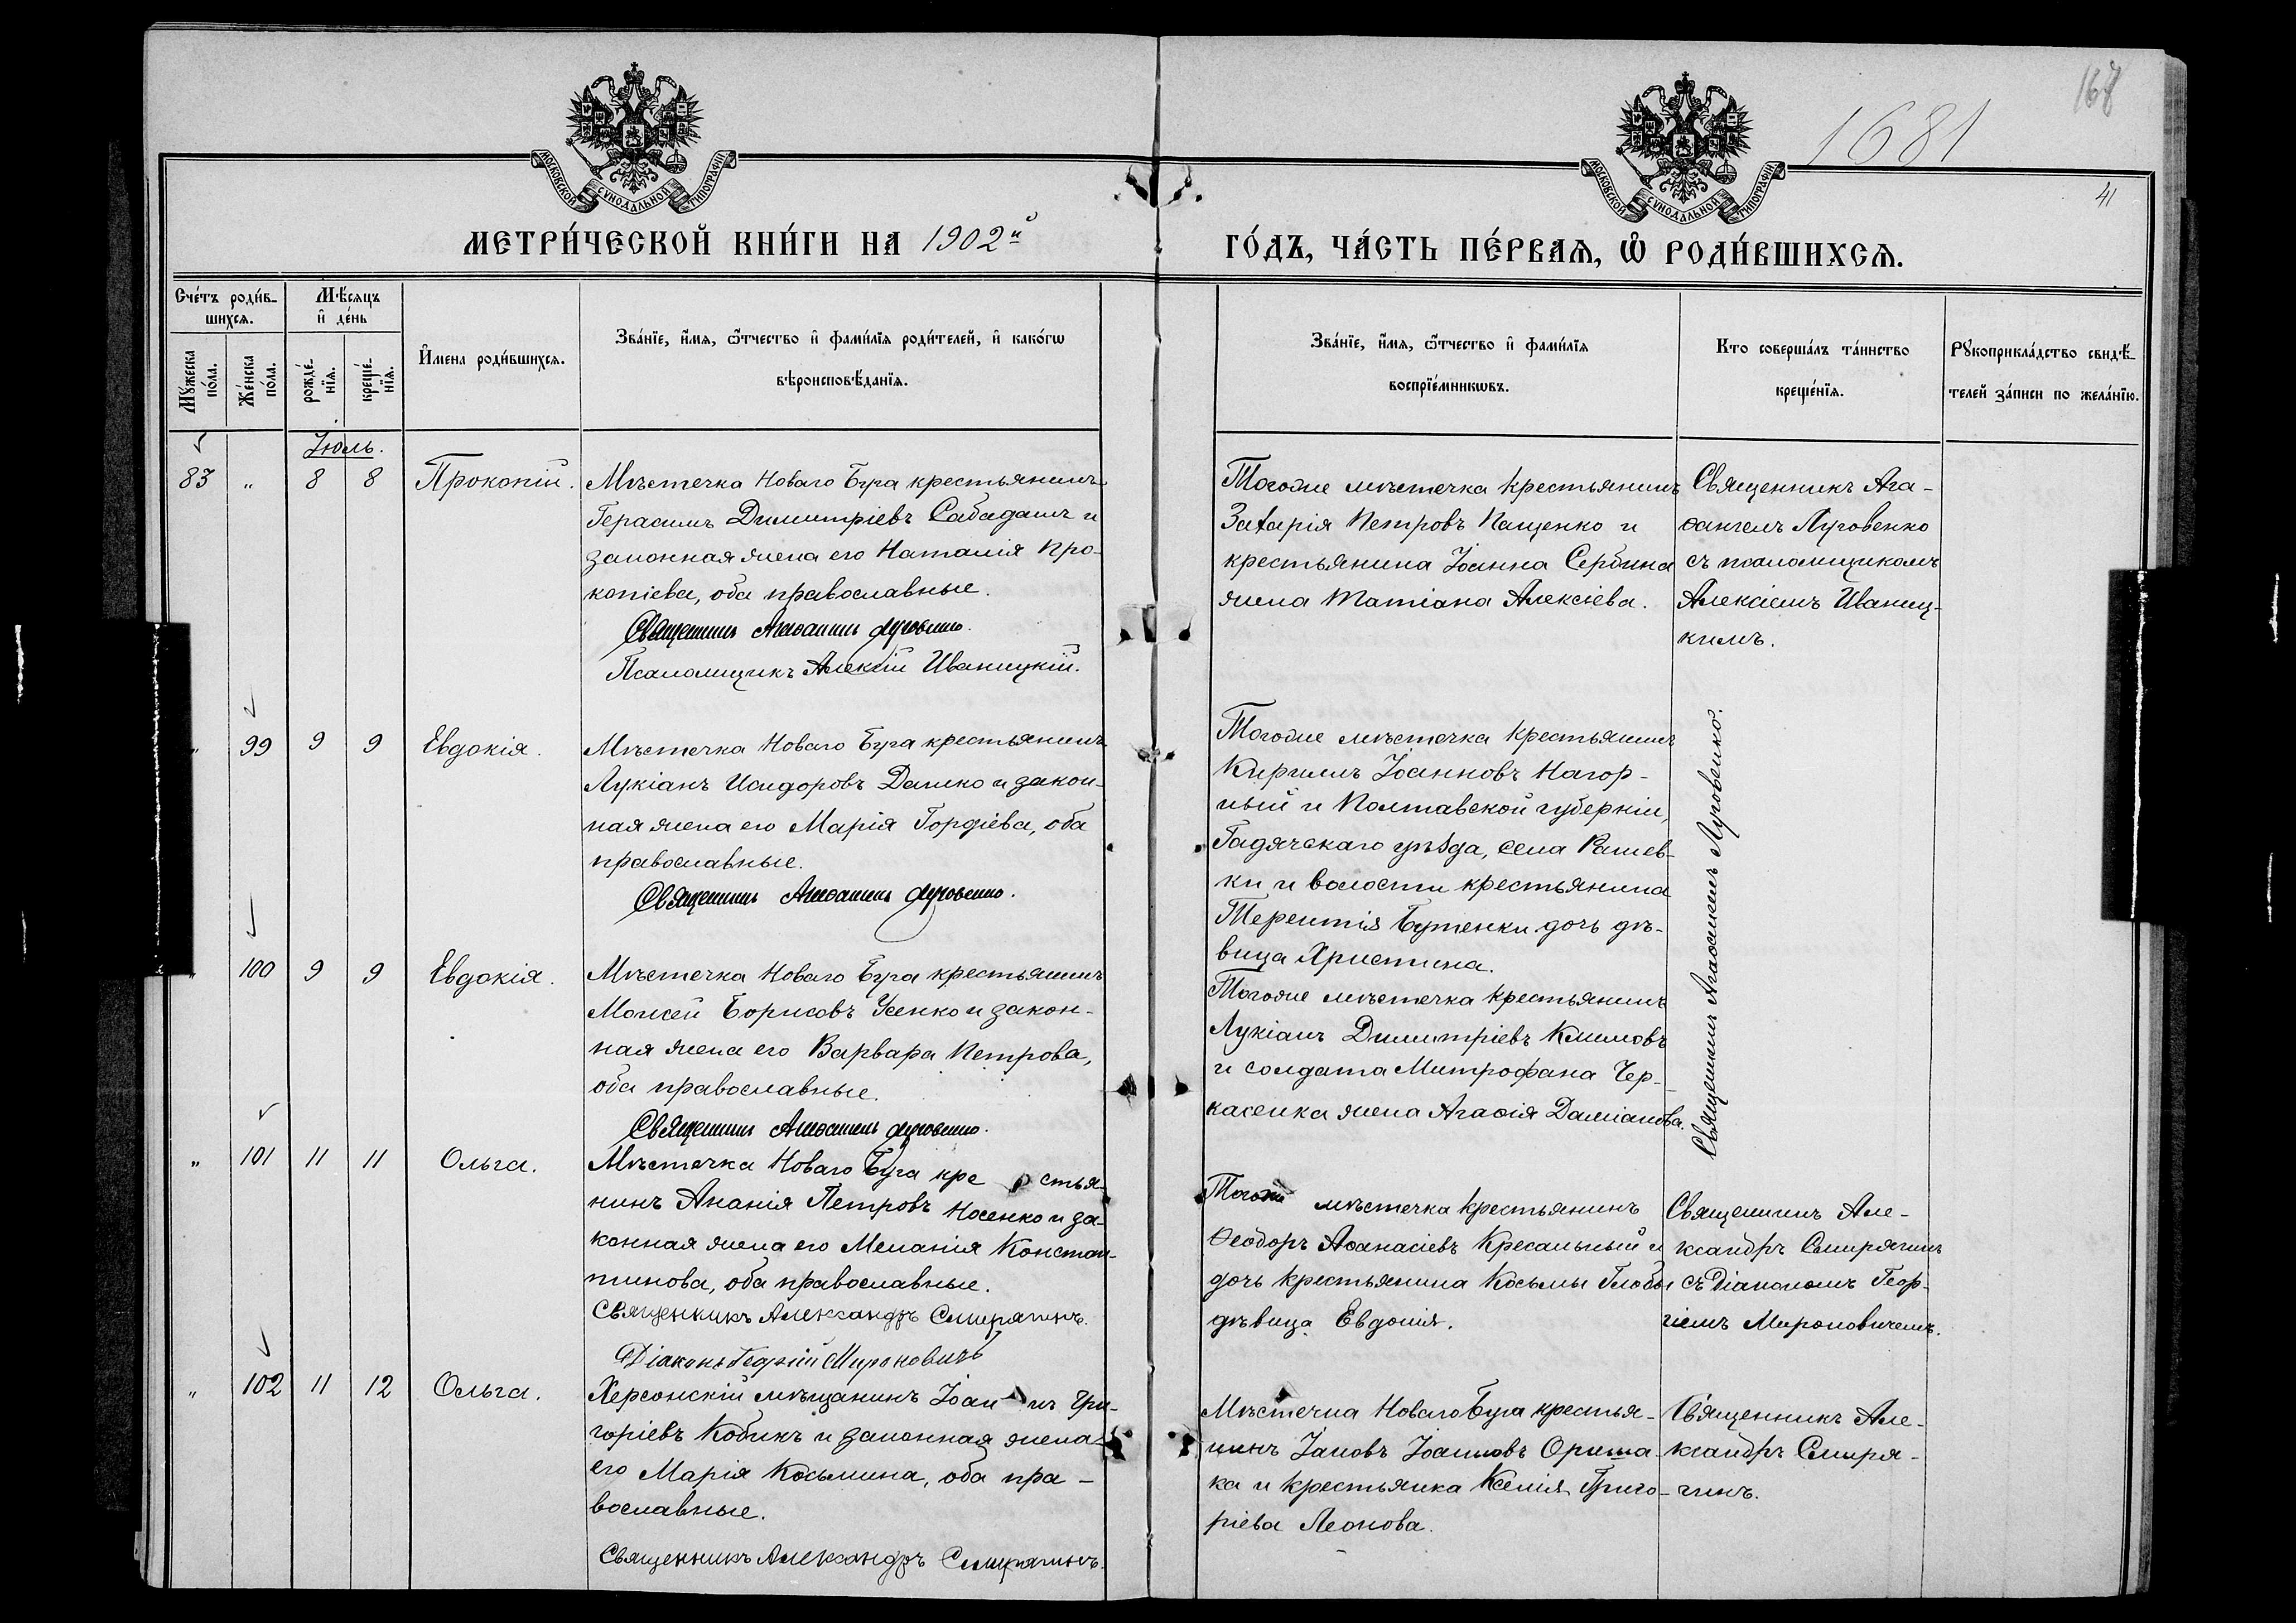 168
1681
41
МОСКОВСКОЙ СѴНОДАЛЬНОЙ ТИПОГРАФІИ
МОСКОВСКОЙ СѴНОДАЛЬНОЙ ТИПОГРАФІИ
МЕТРИ́ЧЕСКОЙ КНИ́ГИ НА 1902й
ГО́ДЪ, ЧА́СТЬ ПЕ́РВАЯ, Ѿ РОДИ́ВШИХСЯ.
Сче́тъ роди́в-
шихся.
Мѣ́сяцъ
и де́нь
Мꙋ́жеска по́ла.
Же́нска по́ла.
рожде́-
нїя.
креще́-
нїя.
Имена роди́вшихся.
Зва́нїе, и́мя, ѻ҆́тчество и фами́лїя роди́телей, и како́гѡ
вѣроисповѣ́данїя.
Зва́нїе, и́мя, ѻ҆́тчество и фами́лїя
воспрїе́мникѡвъ.
Кто соверша́лъ та́инство
креще́нїя.
Рꙋкоприкла́дство свидѣ́-
телей за́писи по жела́нїю.
Іюль.
83 " 8 8 Прокопій. Мѣстечка Новаго Буга крестьянинъ
Герасимъ Димитріевъ Сабадашъ и
законная жена его Наталія Про-
копіева, оба православные.
Священникъ Агаѳангелъ Луговенко.
Псаломщикъ Алексій Иваницкій.
Тогоже мѣстечка крестьянинъ
Захарія Петровъ Пащенко и
крестьянина Іоанна Сербина
жена Татіана Алексіева.
Священникъ Ага-
ѳангелъ Луговенко
съ псаломщикомъ
Алексіемъ Иваниц-
кимъ.
" 99 9 9 Евдокія. Мѣстечка Новаго Буга крестьянинъ
Лукіанъ Исидоровъ Дашко и закон-
ная жена его Марія Гордіева, оба
православные.
Священникъ Агаѳангелъ Луговенко.
Тогоже мѣстечка крестьянинъ
Кириллъ Іоанновъ Нагор-
ный и Полтавской губерніи,
Гадячскаго уѣзда, села Рашев-
ки и волости крестьянина
Терентія Бутенки дочь дѣ-
вица Христина.
Священникъ Агаѳангелъ Луговенко.
" 100 9 9 Евдокія. Мѣстечка Новаго Буга крестьянинъ
Моисей Борисовъ Усенко и закон-
ная жена его Варвара Петрова,
оба православные.
Священникъ Агаѳангелъ Луговенко.
Тогоже мѣстечка крестьянинъ
Лукіанъ Димитріевъ Климовъ
и солдата Митрофана Чер-
касенка жена Агаѳія Даміанова.
" 101 11 11 Ольга. Мѣстечка Новаго Буга кре стья-
нинъ Ананія Петровъ Носенко и за-
конная жена его Меланія Констан-
тинова, оба православные.
Священникъ Александръ Смирягинъ.
Діаконъ Георгій Мироновичъ
Тогоже мѣстечка крестьянинъ
Ѳеодоръ Аѳанасіевъ Кресальный и
дочь крестьянина Косьмы Глобы
дѣвица Евдокія.
Священникъ Але-
ксандръ Смирягинъ
съ Діакономъ Геор-
гіемъ Мироновичемъ.
" 102 11 12 Ольга. Херсонскій мѣщанинъ Іоан нъ Гри-
горіевъ Кобикъ и законная жена
его Марія Косьмина, оба пра-
вославные.
Священникъ Александръ Смирягинъ.
Мѣстечка Новаго Буга крестья-
нинъ Іаковъ Іоанновъ Ориша-
ка и крестьянка Ксенія Григо-
ріева Леонова.
Священникъ Але-
ксандръ Смиря-
гинъ.